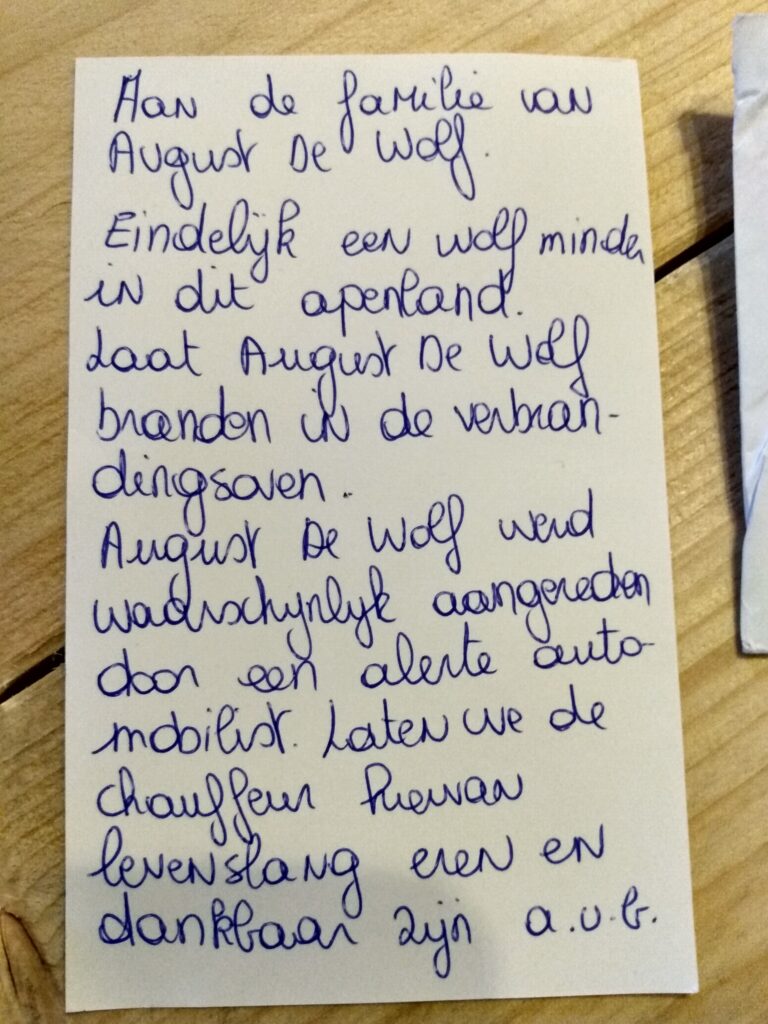 Aan de familie van
August De Wolf.
Eindelijk een wolf minder
in dit apenland.
Laat August De Wolf
branden in de verbran-
dingsoven.
August De Wolf werd
waarschijnlijk aangereden
door een alerte auto-
mobilist. Laten we de
chauffeur hiervan
levenslang eren en
dankbaar zijn a.u.b.